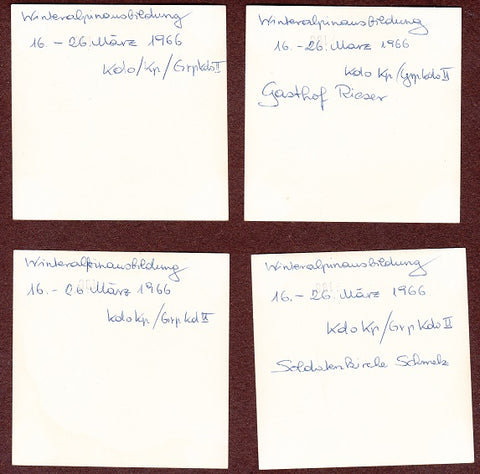 Winteralpinausbildung
16. - 26. März 1966
Kdo/Kp/GrpKdoII
Winteralpinausbildung
16. - 26. März 1966
Kdo Kp/GrpKdoII
Gasthof Rieser
Winteralpinausbildung
16. - 26. März 1966
Kdo Kp/GrpKdII
Winteralpinausbildung
16. - 26. März 1966
Kdo Kp/GrpKdoII
Soldatenkirche Schmelz